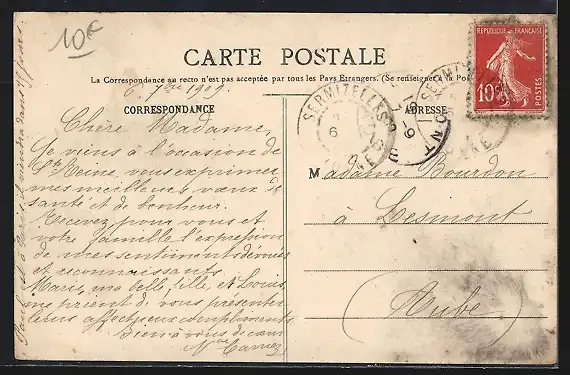 10€
CARTE POSTALE
La Correspondance au recto n'est pas acceptée par tous les Pays Etrangers. (Se renseigner à la Pos
REPUBLIQUE FRANÇAISE
10
POSTES
6 1909.
CORRESPONDANCE
ADRESSE
SERMIZELLES
Chère Madame,
Je viens à l'occasion de
Ste Reine, vous exprimer
mes meilleurs vœux de
santé et de bonheur.
Recevez pour vous et
votre famille l'expression
de mes sentiments dévoués
et reconnaissants
Marie, ma belle fille, et Louis,
me prient de vous présenter
leurs affectueux compliments
Bien à vous de cœur
Mme Carrez
Madame Bourdon
à Lesmont
(Aube)